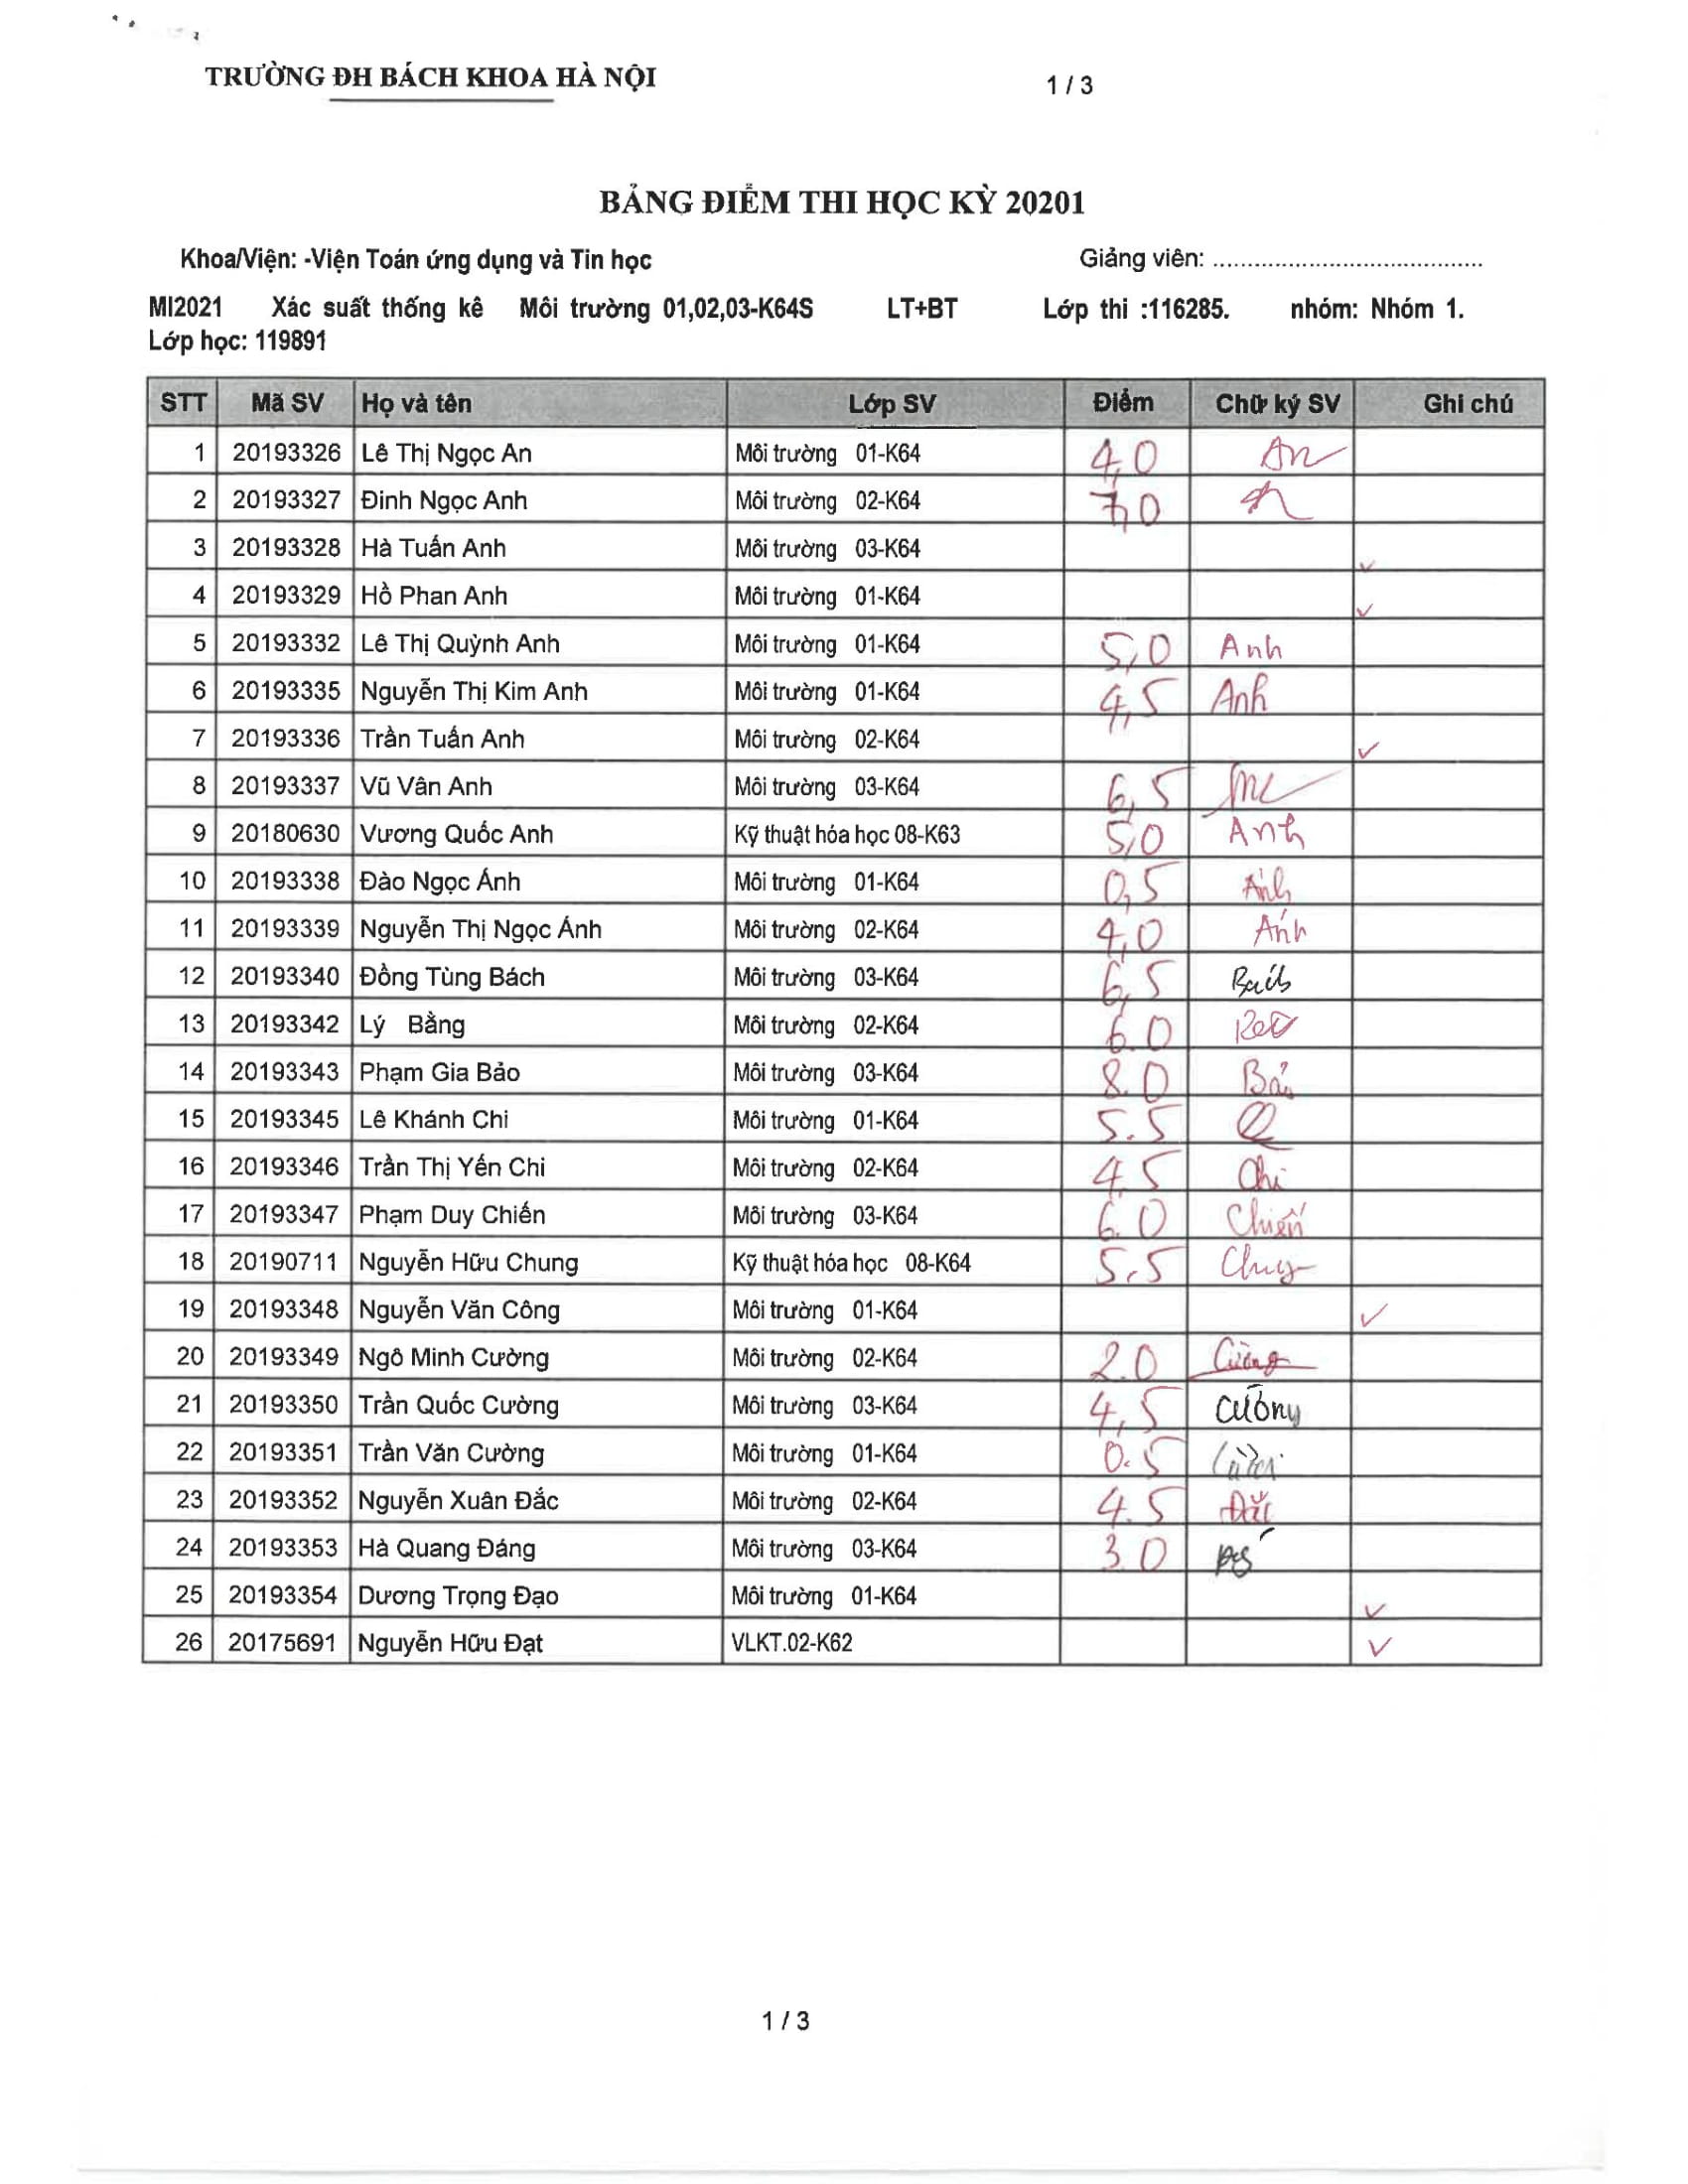 TRƯỜNG ĐH BÁCH KHOA HÀ NỘI 1 / 3
BẢNG ĐIỂM THI HỌC KỲ 20201
Khoa/Viện: -Viện Toán ứng dụng và Tin học Giảng viên: ......................................
MI2021 Xác suất thống kê Môi trường 01,02,03-K64S LT+BT Lớp thi :116285. nhóm: Nhóm 1.
Lớp học: 119891
STT Mã SV Họ và tên Lớp SV Điểm Chữ ký SV Ghi chú
1 20193326 Lê Thị Ngọc An Môi trường 01-K64 4,0 An
2 20193327 Đinh Ngọc Anh Môi trường 02-K64 7,0
3 20193328 Hà Tuấn Anh Môi trường 03-K64 ✓
4 20193329 Hồ Phan Anh Môi trường 01-K64 ✓
5 20193332 Lê Thị Quỳnh Anh Môi trường 01-K64 5,0 Anh
6 20193335 Nguyễn Thị Kim Anh Môi trường 01-K64 4,5 Anh
7 20193336 Trần Tuấn Anh Môi trường 02-K64 ✓
8 20193337 Vũ Vân Anh Môi trường 03-K64 6,5
9 20180630 Vương Quốc Anh Kỹ thuật hóa học 08-K63 5,0 Anh
10 20193338 Đào Ngọc Ánh Môi trường 01-K64 0,5 Ánh
11 20193339 Nguyễn Thị Ngọc Ánh Môi trường 02-K64 4,0 Ánh
12 20193340 Đồng Tùng Bách Môi trường 03-K64 6,5 Bách
13 20193342 Lý Bằng Môi trường 02-K64 6.0
14 20193343 Phạm Gia Bảo Môi trường 03-K64 8.0 Bảo
15 20193345 Lê Khánh Chi Môi trường 01-K64 5.5
16 20193346 Trần Thị Yến Chi Môi trường 02-K64 4.5 Chi
17 20193347 Phạm Duy Chiến Môi trường 03-K64 6.0 Chiến
18 20190711 Nguyễn Hữu Chung Kỹ thuật hóa học 08-K64 5.5 Chung
19 20193348 Nguyễn Văn Công Môi trường 01-K64 ✓
20 20193349 Ngô Minh Cường Môi trường 02-K64 2.0 Cường
21 20193350 Trần Quốc Cường Môi trường 03-K64 4,5 Cường
22 20193351 Trần Văn Cường Môi trường 01-K64 0.5
23 20193352 Nguyễn Xuân Đắc Môi trường 02-K64 4.5 Đắc
24 20193353 Hà Quang Đáng Môi trường 03-K64 3.0
25 20193354 Dương Trọng Đạo Môi trường 01-K64 ✓
26 20175691 Nguyễn Hữu Đạt VLKT.02-K62 ✓
1 / 3